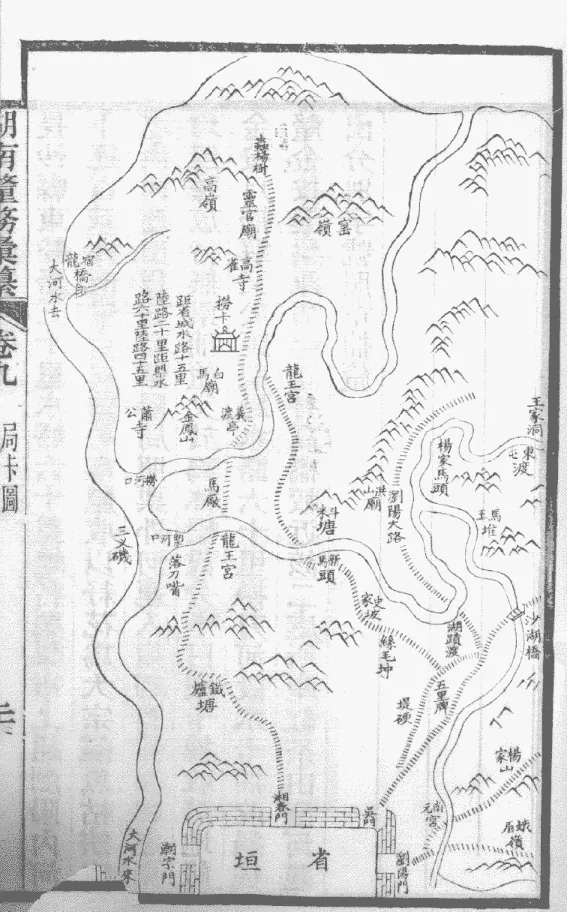 湖南釐務彙纂
卷九
局卡圖
二
蟲楊樹
高嶺
靈官廟
窑嶺
高雀寺
龍橋
大河水去
撈卡
距省城水路十五里
陸路二十里距梨水
路六十里陸路四十五里
白馬廟
龍王宮
義渡亭
金鳳山
蕭公寺
撈河口
馬廠
王家洞
東屯渡
楊家馬頭
馬王堆
洪山廟
瀏陽大路
斗米塘
三义磯
梨河口
龍王宮
落刀嘴
新馬頭
史家坡
絲毛坤
湖蹟渡
沙湖橋
五里牌
堤硬
鐵爐塘
楊家山
南元宮
蛾眉嶺
湘春門
大河水來
潮宗門
省垣
瀏陽門